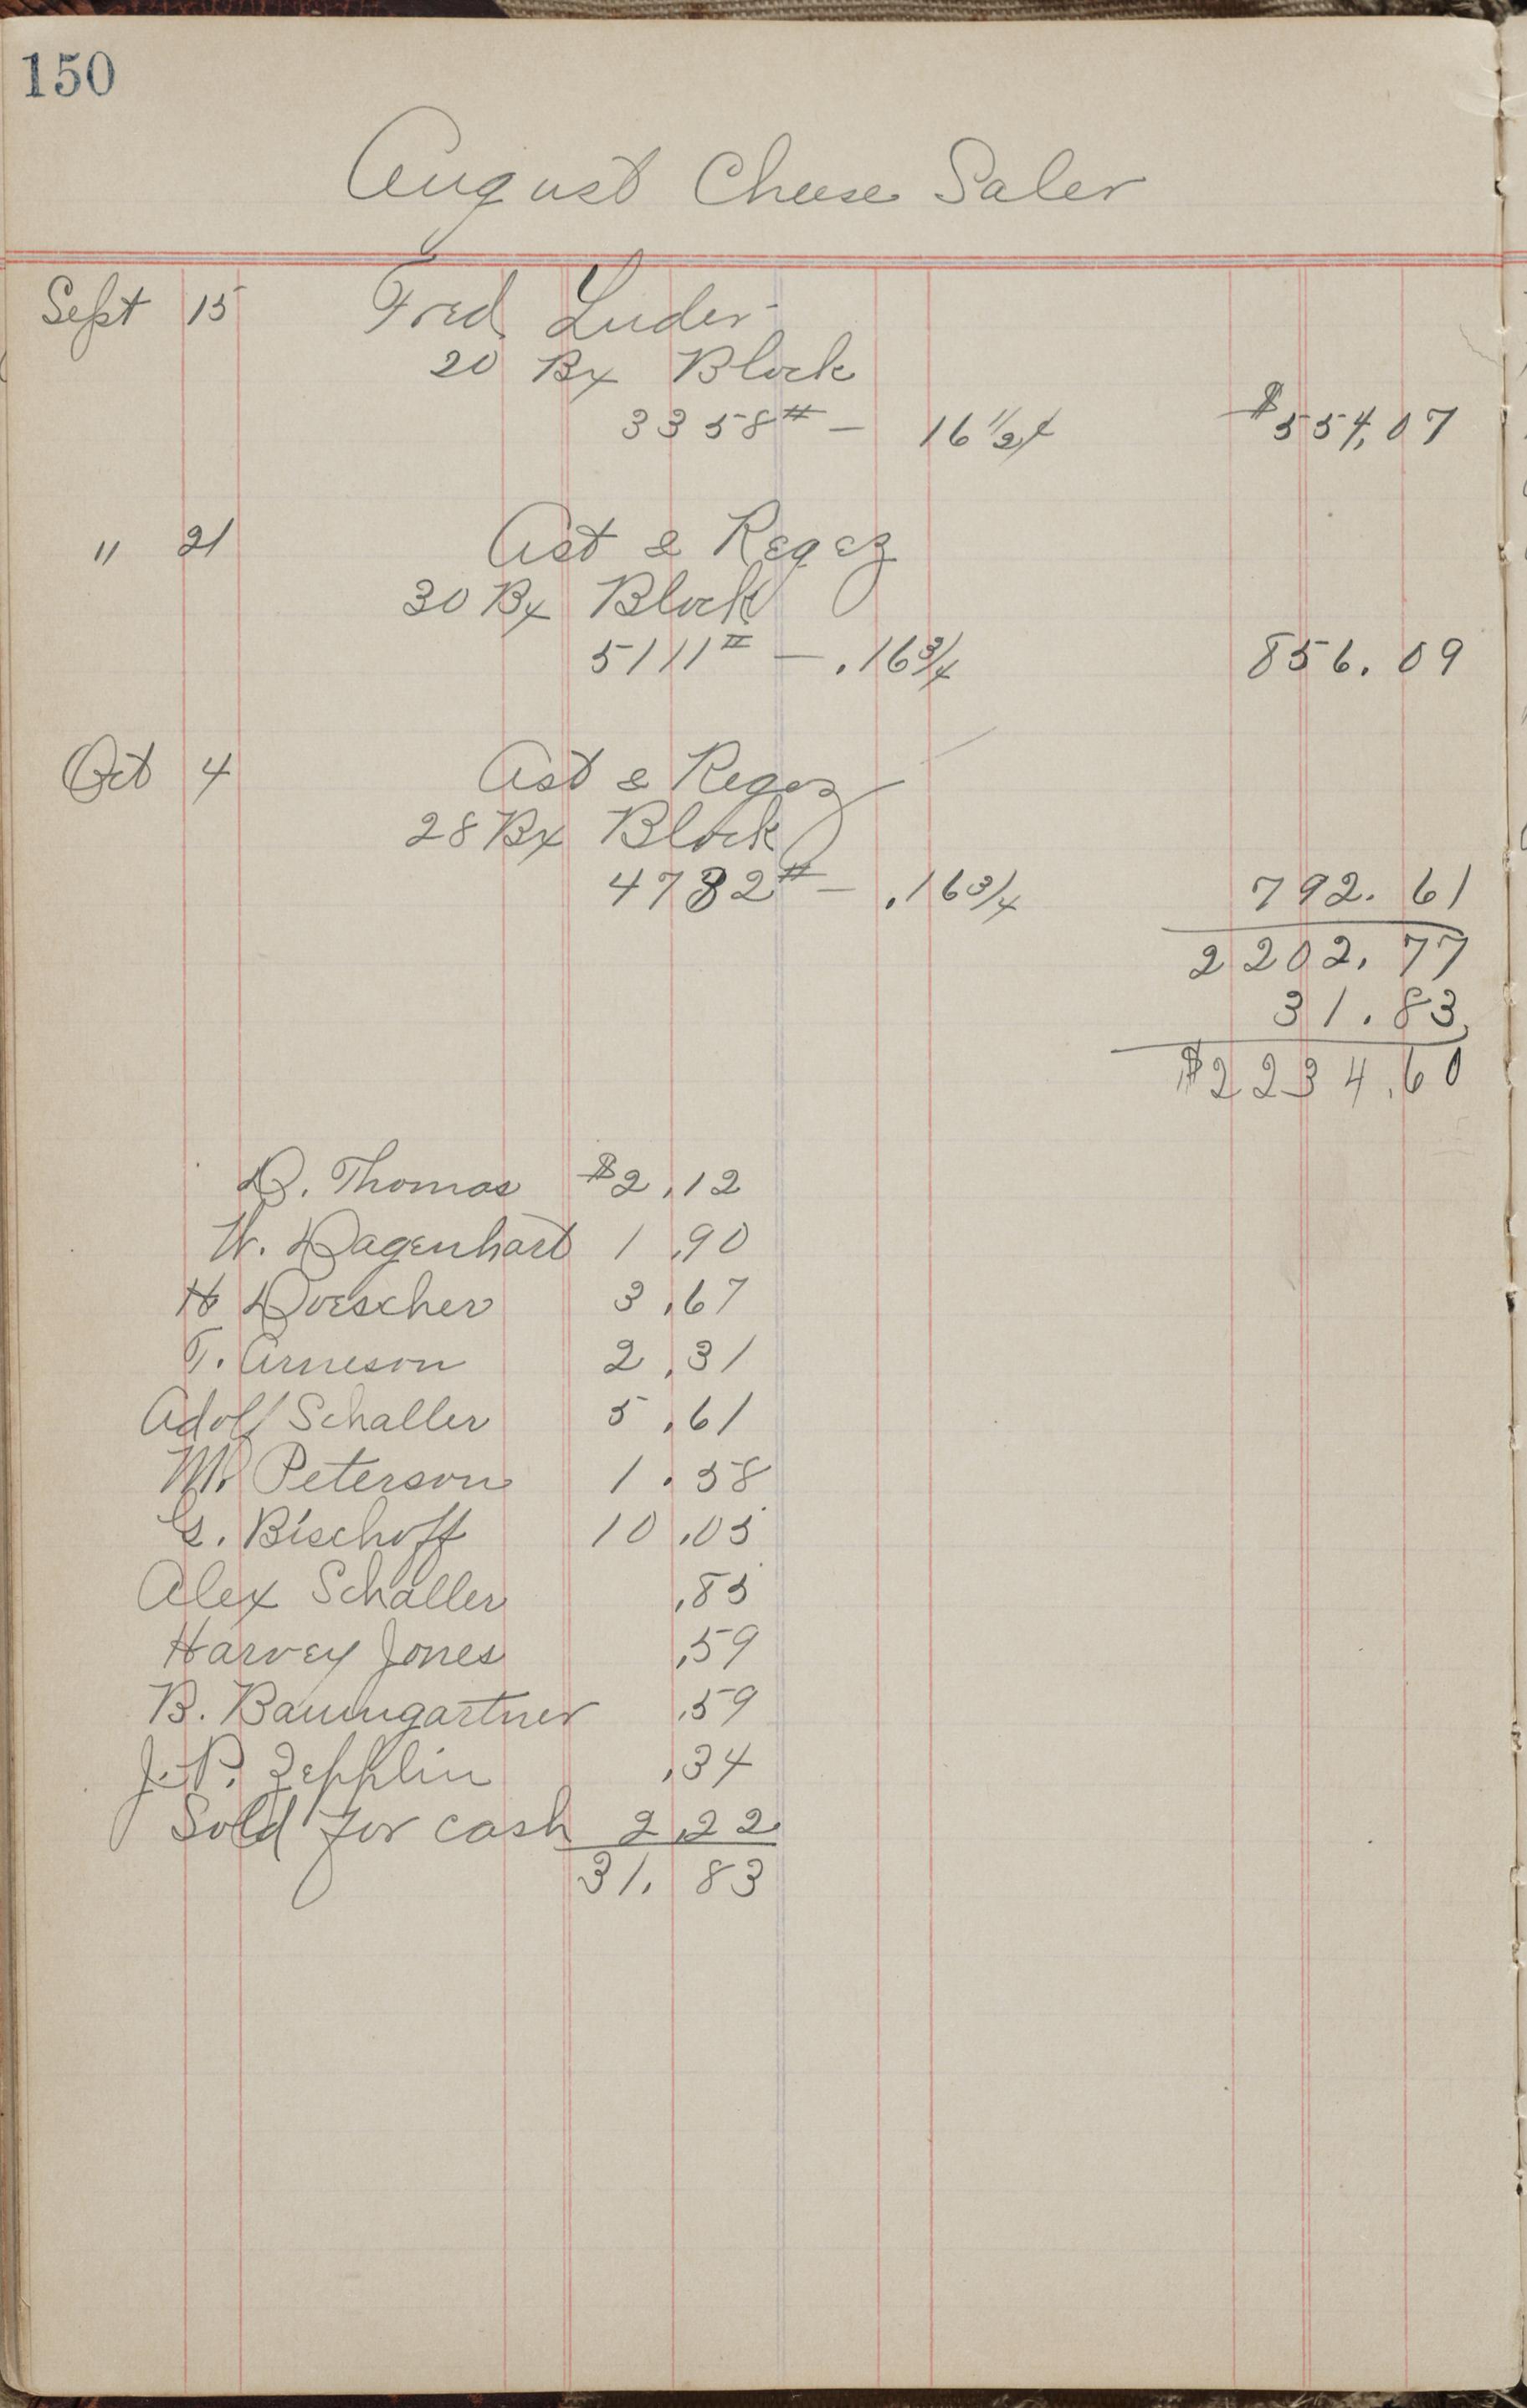 150
August Cheese Sales
Sept 15 Fred Luder
20 Bx Block
3358# — 16 1/2¢ $554.07
" 21 Ast & Regez
30 Bx Block
5111# — .16 3/4 856.09
Oct 4 Ast & Regez
28 Bx Block
4732# — .16 3/4 792.61
2202.77
31.83
$2234.60
D. Thomas $2.12
W. Dagenhart 1.90
H Doescher 3.67
T. Arneson 2.31
Adolf Schaller 5.61
M. Peterson 1.58
G. Bischoff 10.05
Alex Schaller .85
Harvey Jones .59
B. Baumgartner .59
J. P. Zepplin .34
Sold for cash 2.22
31.83